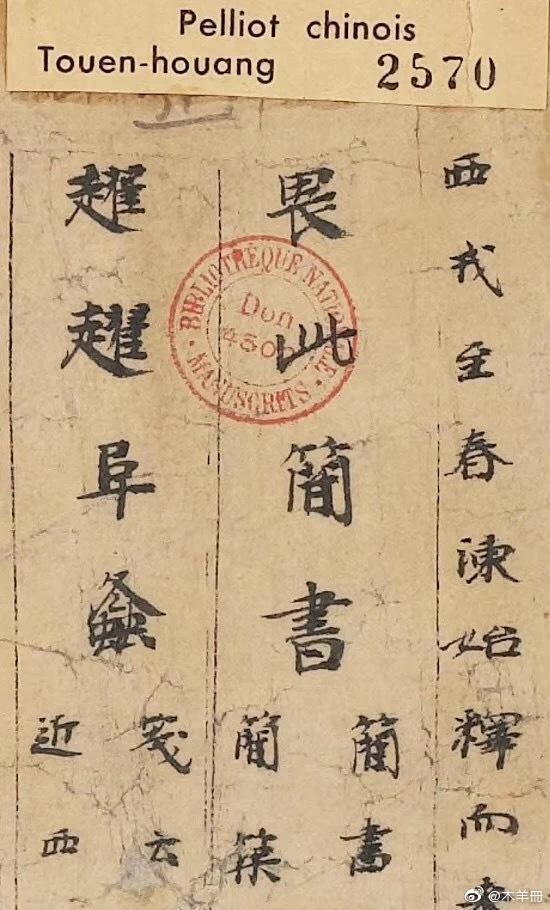 Pelliot chinois
Touen-houang 2570
西戎至春凍始釋而
畏此簡書
簡書
簡筞
趯趯阜螽
箋云
近西
BIBLIOTHÈQUE NATIONALE
Don
MANUSCRITS
@木羊冊